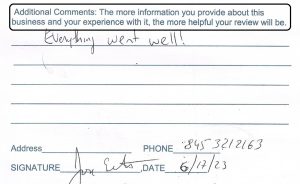 Additional Comments: The more information you provide about this
business and your experience with it, the more helpful your review will be.
Everything went well!
Address PHONE 845 3212163
SIGNATURE DATE 6/17/23